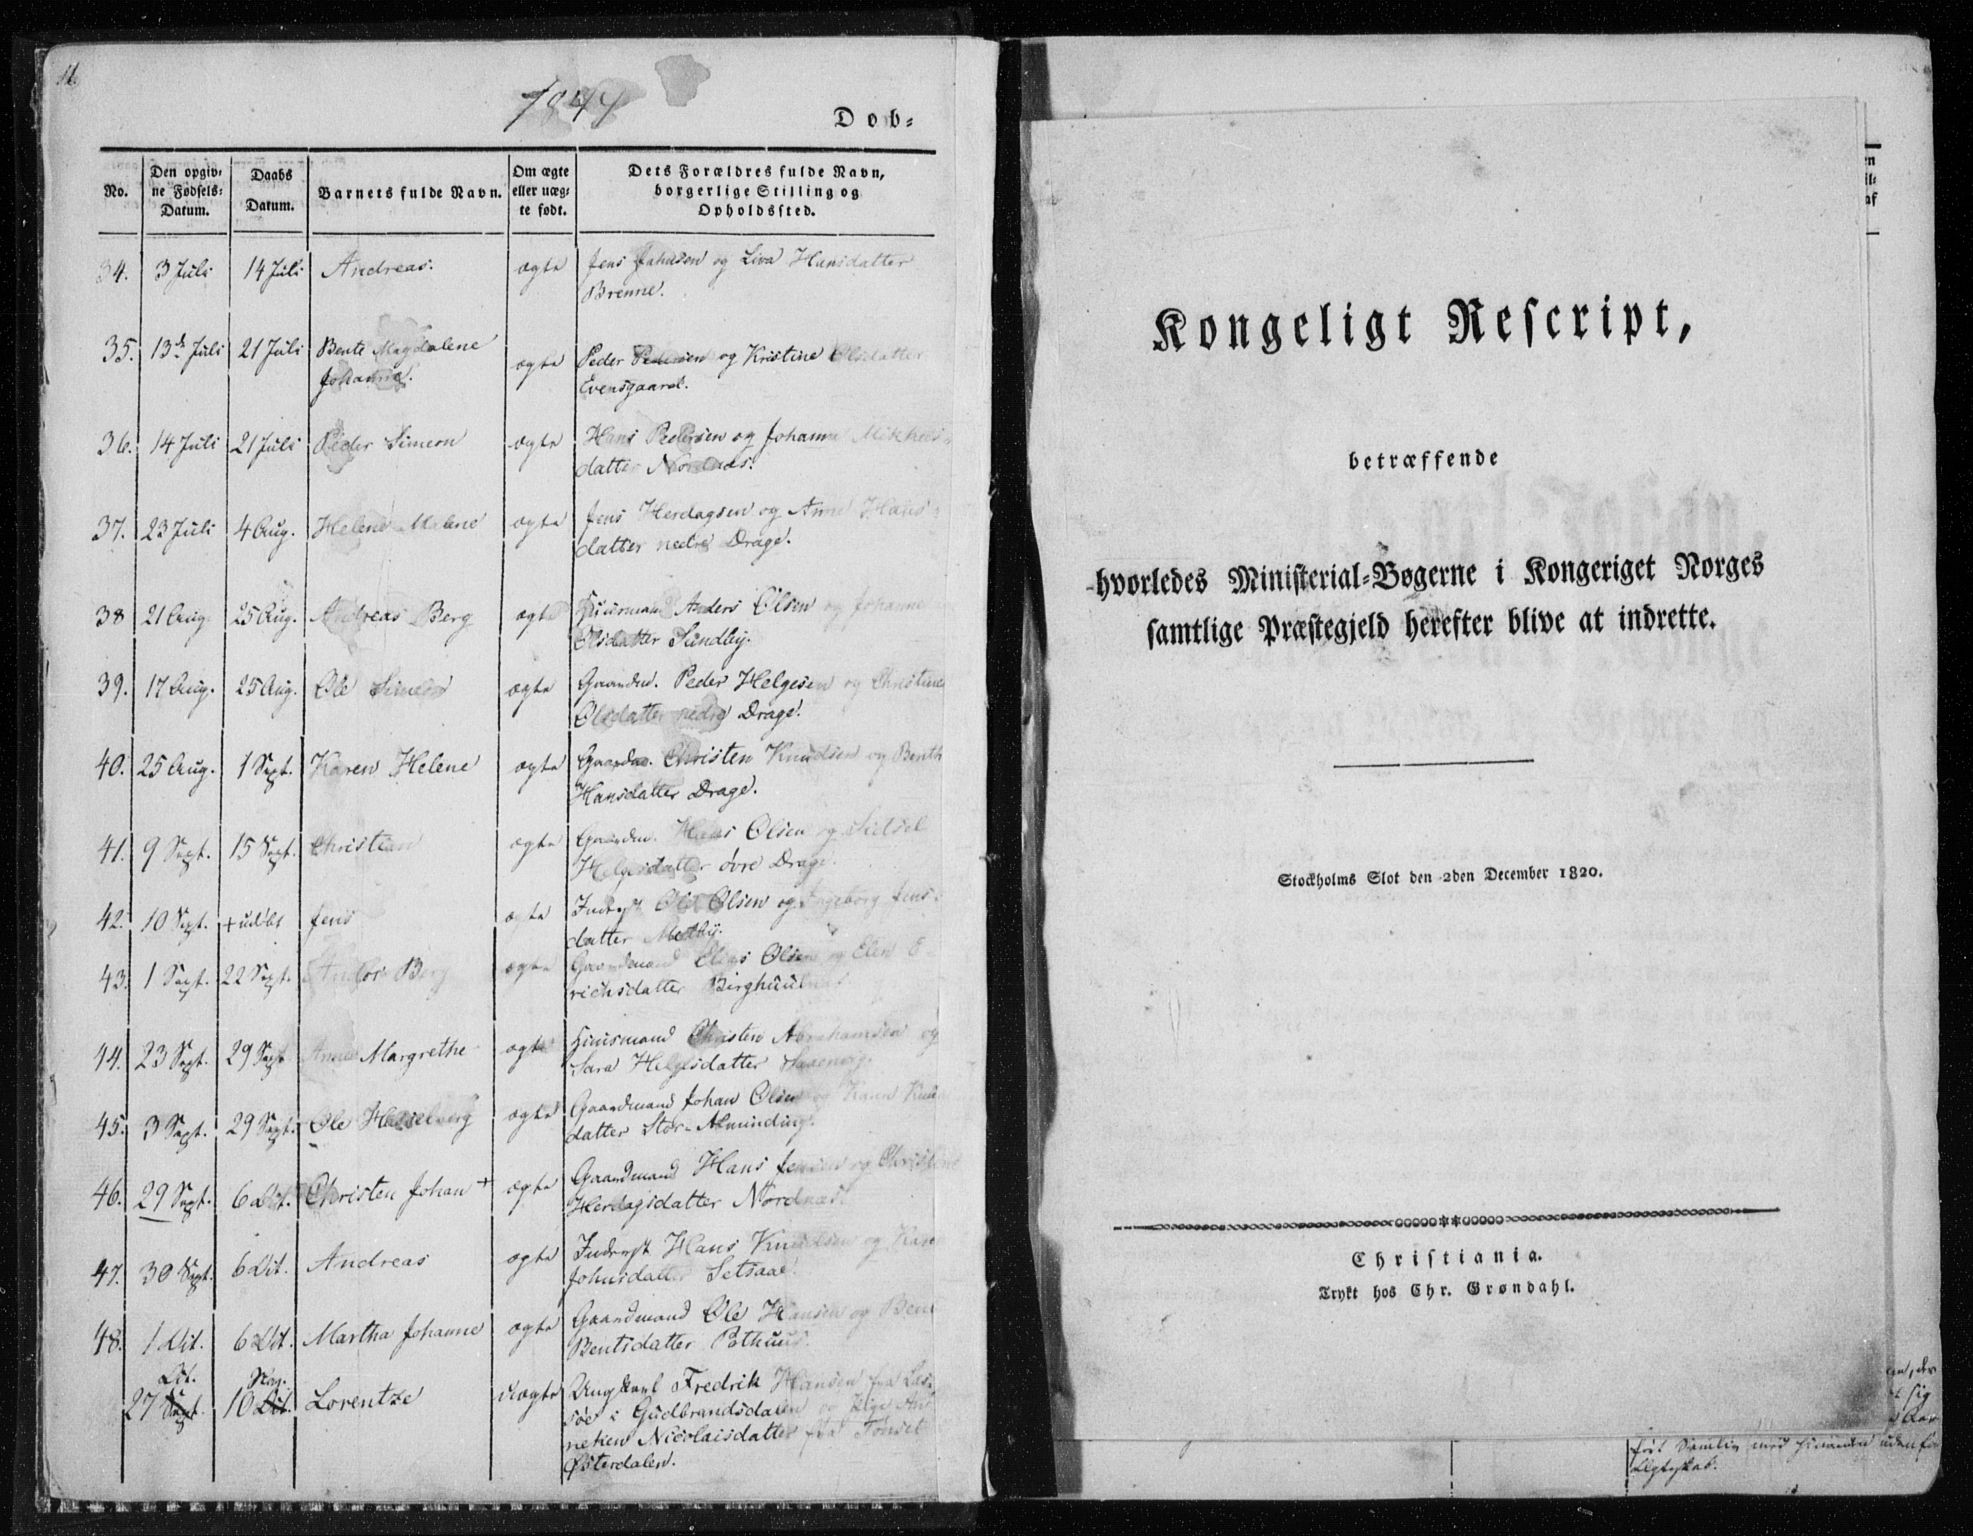 1844
Dob-
No.
Den opgiv-
ne Fødsels-
Datum.
Daabs
Datum.
Barnets fulde Navn.
Om ægte
eller uæg-
te født.
Dets Forældres fulde Navn,
borgerlige Stilling og
Opholdssted.
34. 3 Juli 14 Juli Andreas. ægte Jens Johnsen og Liva Hansdatter
Brenne.
35. 13de Juli 21 Juli Bente Magdalene
Johanna. ægte Peder Pedersen og Kristine Olsdatter
Evensgaard.
36. 14 Juli 21 Juli Peder Simeon ægte Hans Pedersen og Johanna Mikkels-
datter Nordnæs.
37. 23 Juli 4 Aug. Helene Malene ægte Jens Herdagsen og Anne Hans-
datter nedre Drage.
38 21 Aug. 25 Aug. Andreas Berg ægte Huusmand Anders Olsen og Johanne
Olsdatter Sundby.
39. 17 Aug. 25 Aug. Ole Simeon ægte Gaardm. Peder Helgesen og Christine
Olsdatter nedre Drage.
40. 25 Aug. 1 Sept. Karen Helene ægte Gaardm. Christen Knudsen og Benth
Hansdatter Drage.
41. 9 Sept. 15 Sept. Christian ægte Gaardm. Hans Olsen og Sidsel
Helgesdatter øvre Drage.
42. 10 Sept. Jens ægte Inderst Ole Olsen og Ingeborg Jens-
datter Medby.
43. 1 Sept. 22 Sept. Andor Berg ægte Gaardmand Elias Olsen og Elen E-
richsdatter
44. 23 Sept. 29 Sept Anne Margrethe ægte Huusmand Christen Abrahamsen og
Sara Helgesdatter
45. 3 Sept. 29 Sept. Ole Hasselberg ægte Gaardmand Johan Olsen og
datter Stor-Alminding.
46. 29 Sept. 6 Oct. Christen Johan + ægte Gaardmand Hans Jensen og Christine
Herdagsdatter Nordnæs.
47. 30 Sept. 6 Oct. Andreas ægte Inderst Hans Knudsen og Karen
Johnsdatter Setsaae.
48. 1 Oct. 6 Oct. Martha Johanne ægte Gaardmand Ole Hansen og
Bentsdatter Pothuus.
Oct. Nov.
27 Sept. 10 Oct. Lorentze uægte Ungkarl Fredrik Hansen fra Les-
søe i Gudbrandsdalen og Pige An-
neken Nicolaisdatter fra Tønset
Østerdalen.
Kongeligt Rescript,
betræffende
hvorledes Ministerial-Bøgerne i Kongeriget Norges
samtlige Præstegjeld herefter blive at indrette.
Stockholms Slot den 2den December 1820.
Christiania.
Trykt hos Chr. Grøndahl.